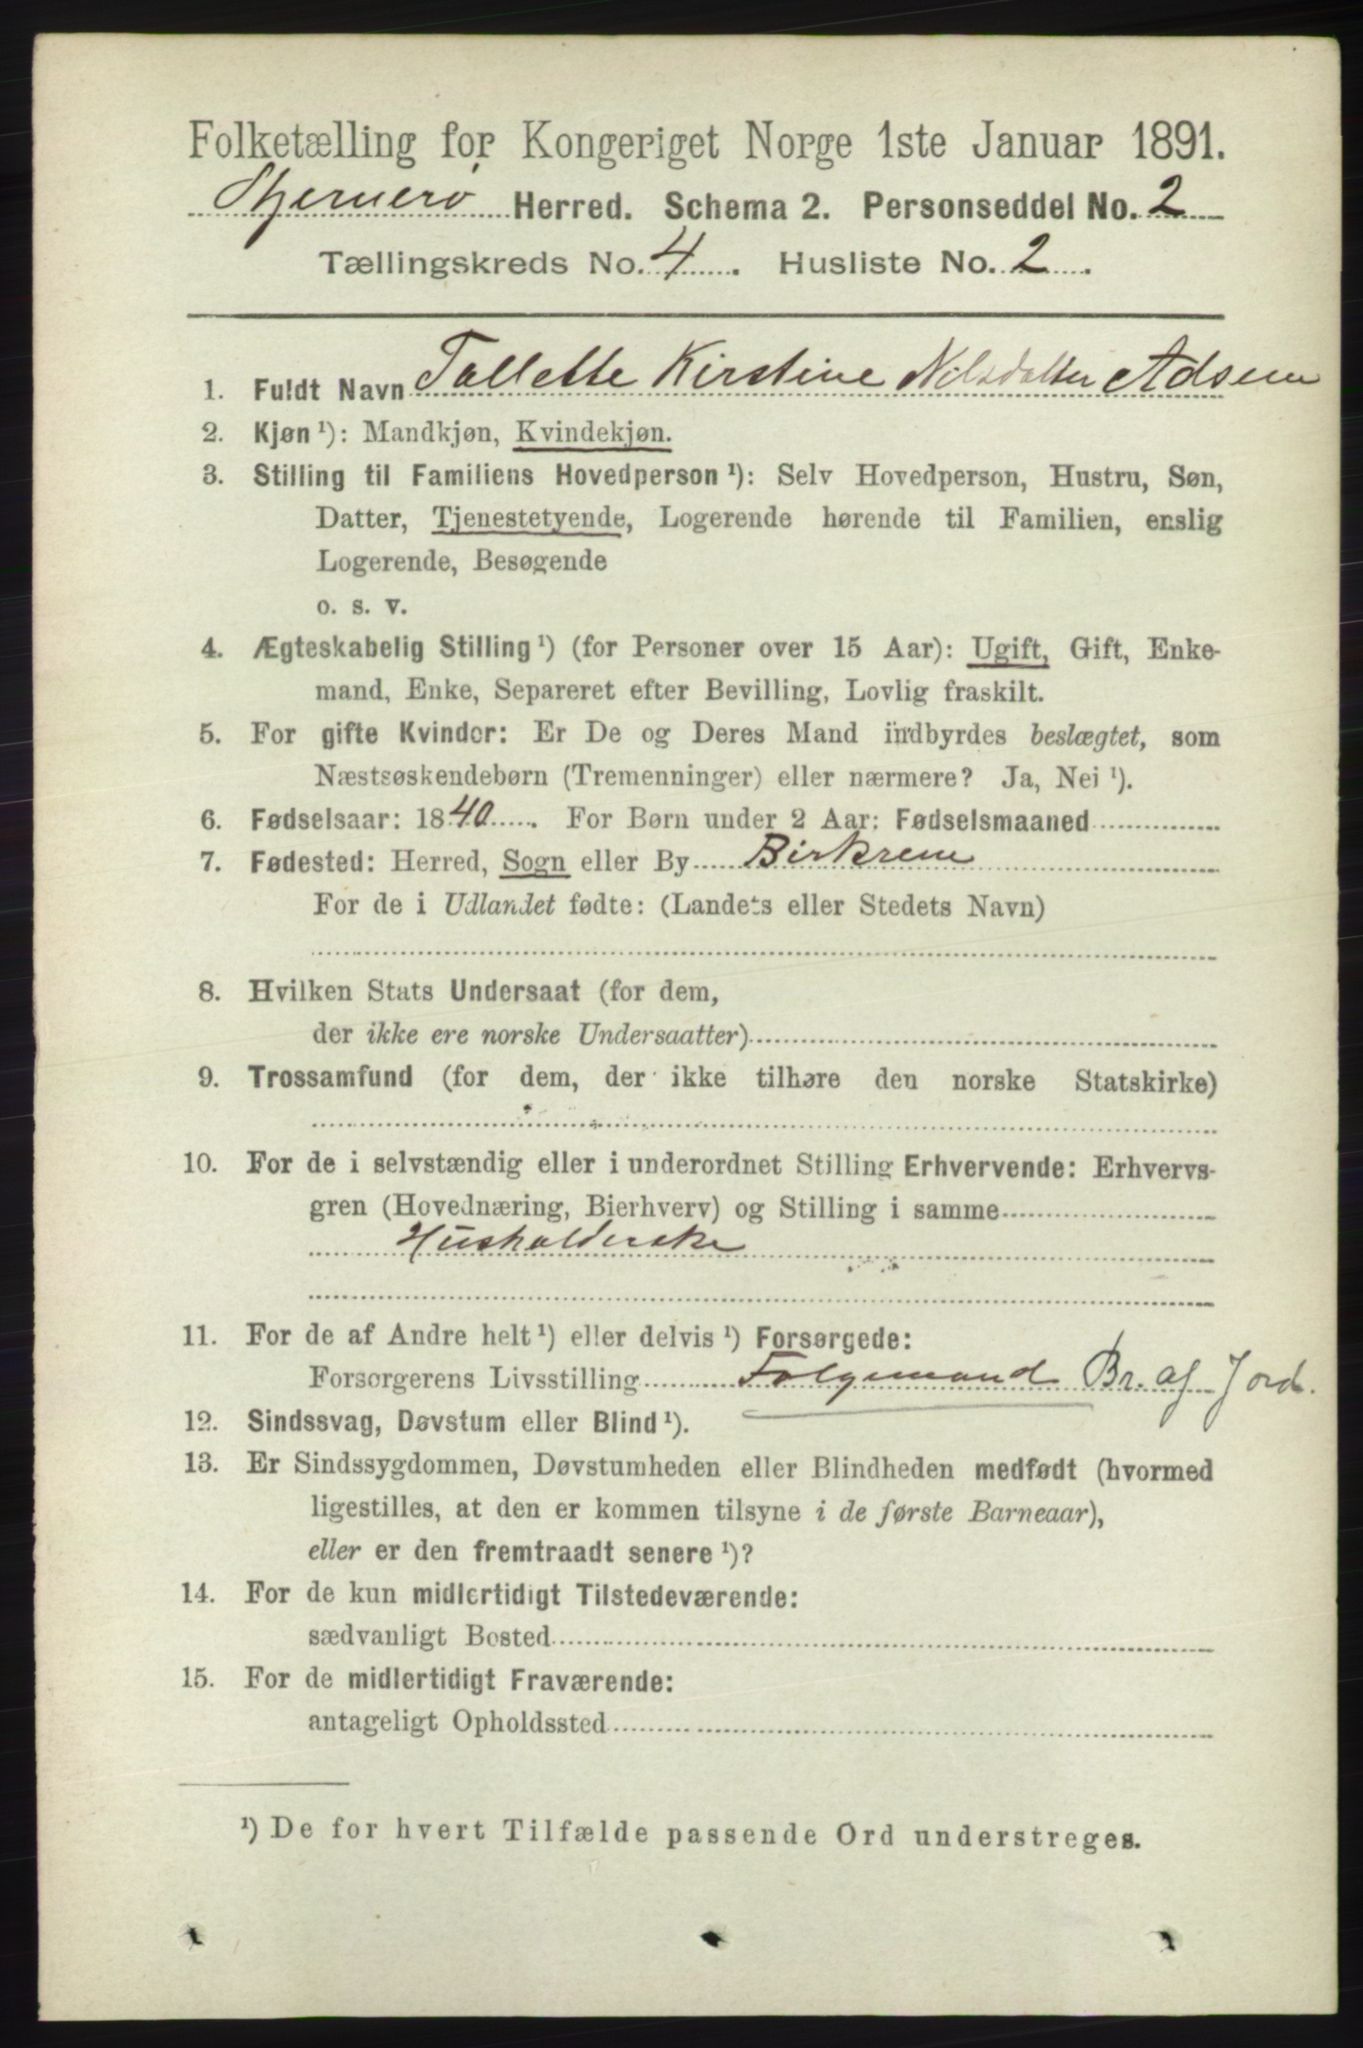 Folketælling for Kongeriget Norge 1ste Januar 1891.
Stjernerø Herred. Schema 2. Personseddel No. 2
Tællingskreds No. 4. Husliste No. 2.
1. Fuldt Navn Tallette Kirstine Nilsdatter Adsem
2. Kjøn ¹): Mandkjøn, Kvindekjøn.
3. Stilling til Familiens Hovedperson ¹): Selv Hovedperson, Hustru, Søn,
Datter, Tjenestetyende, Logerende hørende til Familien, enslig
Logerende, Besøgende
o. s. v.
4. Ægteskabelig Stilling ¹) (for Personer over 15 Aar): Ugift, Gift, Enke-
mand, Enke, Separeret efter Bevilling, Lovlig fraskilt.
5. For gifte Kvinder: Er De og Deres Mand indbyrdes beslægtet, som
Næstsøskendebørn (Tremenninger) eller nærmere? Ja, Nei ¹).
6. Fødselsaar: 1840. For Børn under 2 Aar: Fødselsmaaned
7. Fødested: Herred, Sogn eller By Birkrem
For de i Udlandet fødte: (Landets eller Stedets Navn)
8. Hvilken Stats Undersaat (for dem,
der ikke ere norske Undersaatter)
9. Trossamfund (for dem, der ikke tilhøre den norske Statskirke)
10. For de i selvstændig eller i underordnet Stilling Erhvervende: Erhvervs-
gren (Hovednæring, Bierhverv) og Stilling i samme
Husholderske
11. For de af Andre helt ¹) eller delvis ¹) Forsørgede:
Forsørgerens Livsstilling Folgemand Br. af Jord.
12. Sindssvag, Døvstum eller Blind ¹).
13. Er Sindssygdommen, Døvstumheden eller Blindheden medfødt (hvormed
ligestilles, at den er kommen tilsyne i de første Barneaar),
eller er den fremtraadt senere ¹)?
14. For de kun midlertidigt Tilstedeværende:
sædvanligt Bosted
15. For de midlertidigt Fraværende:
antageligt Opholdssted
¹) De for hvert Tilfælde passende Ord understreges.